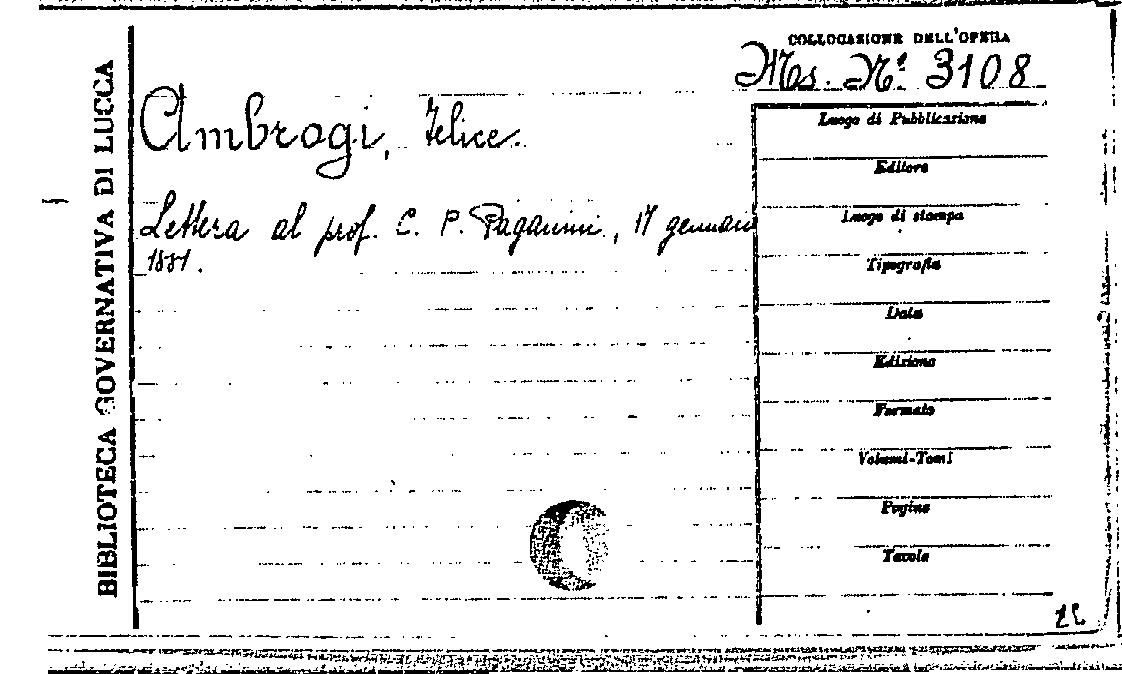 BIBLIOTECA GOVERNATIVA DI LUCCA
COLLOCAZIONE DELL'OPERA
Ms. N.° 3108
Ambrogi, Felice.
Lettera al prof. C. P. Paganini, 17 gennaio
1881.
Luogo di Pubblicazione
Editore
Luogo di stampa
Tipografia
Data
Edizione
Formato
Volumi-Tomi
Pagine
Tavole